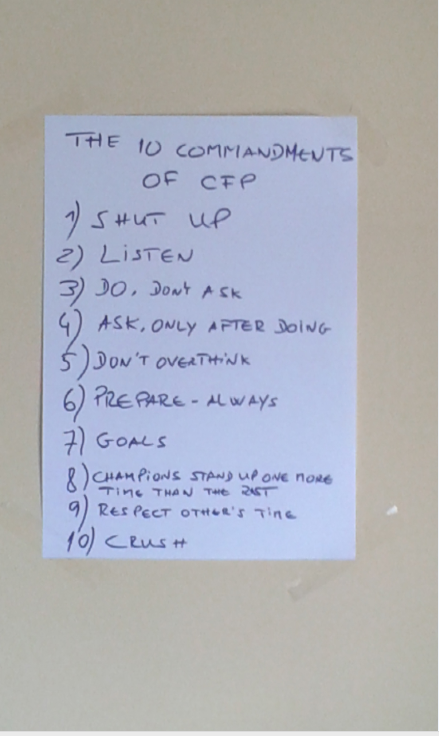 THE 10 COMMANDMENTS
OF CFP
1) SHUT UP
2) LISTEN
3) DO, DON'T ASK
4) ASK, ONLY AFTER DOING
5) DON'T OVERTHINK
6) PREPARE - ALWAYS
7) GOALS
8) CHAMPIONS STAND UP ONE MORE
TIME THAN THE REST
9) RESPECT OTHER'S TIME
10) CRUSH